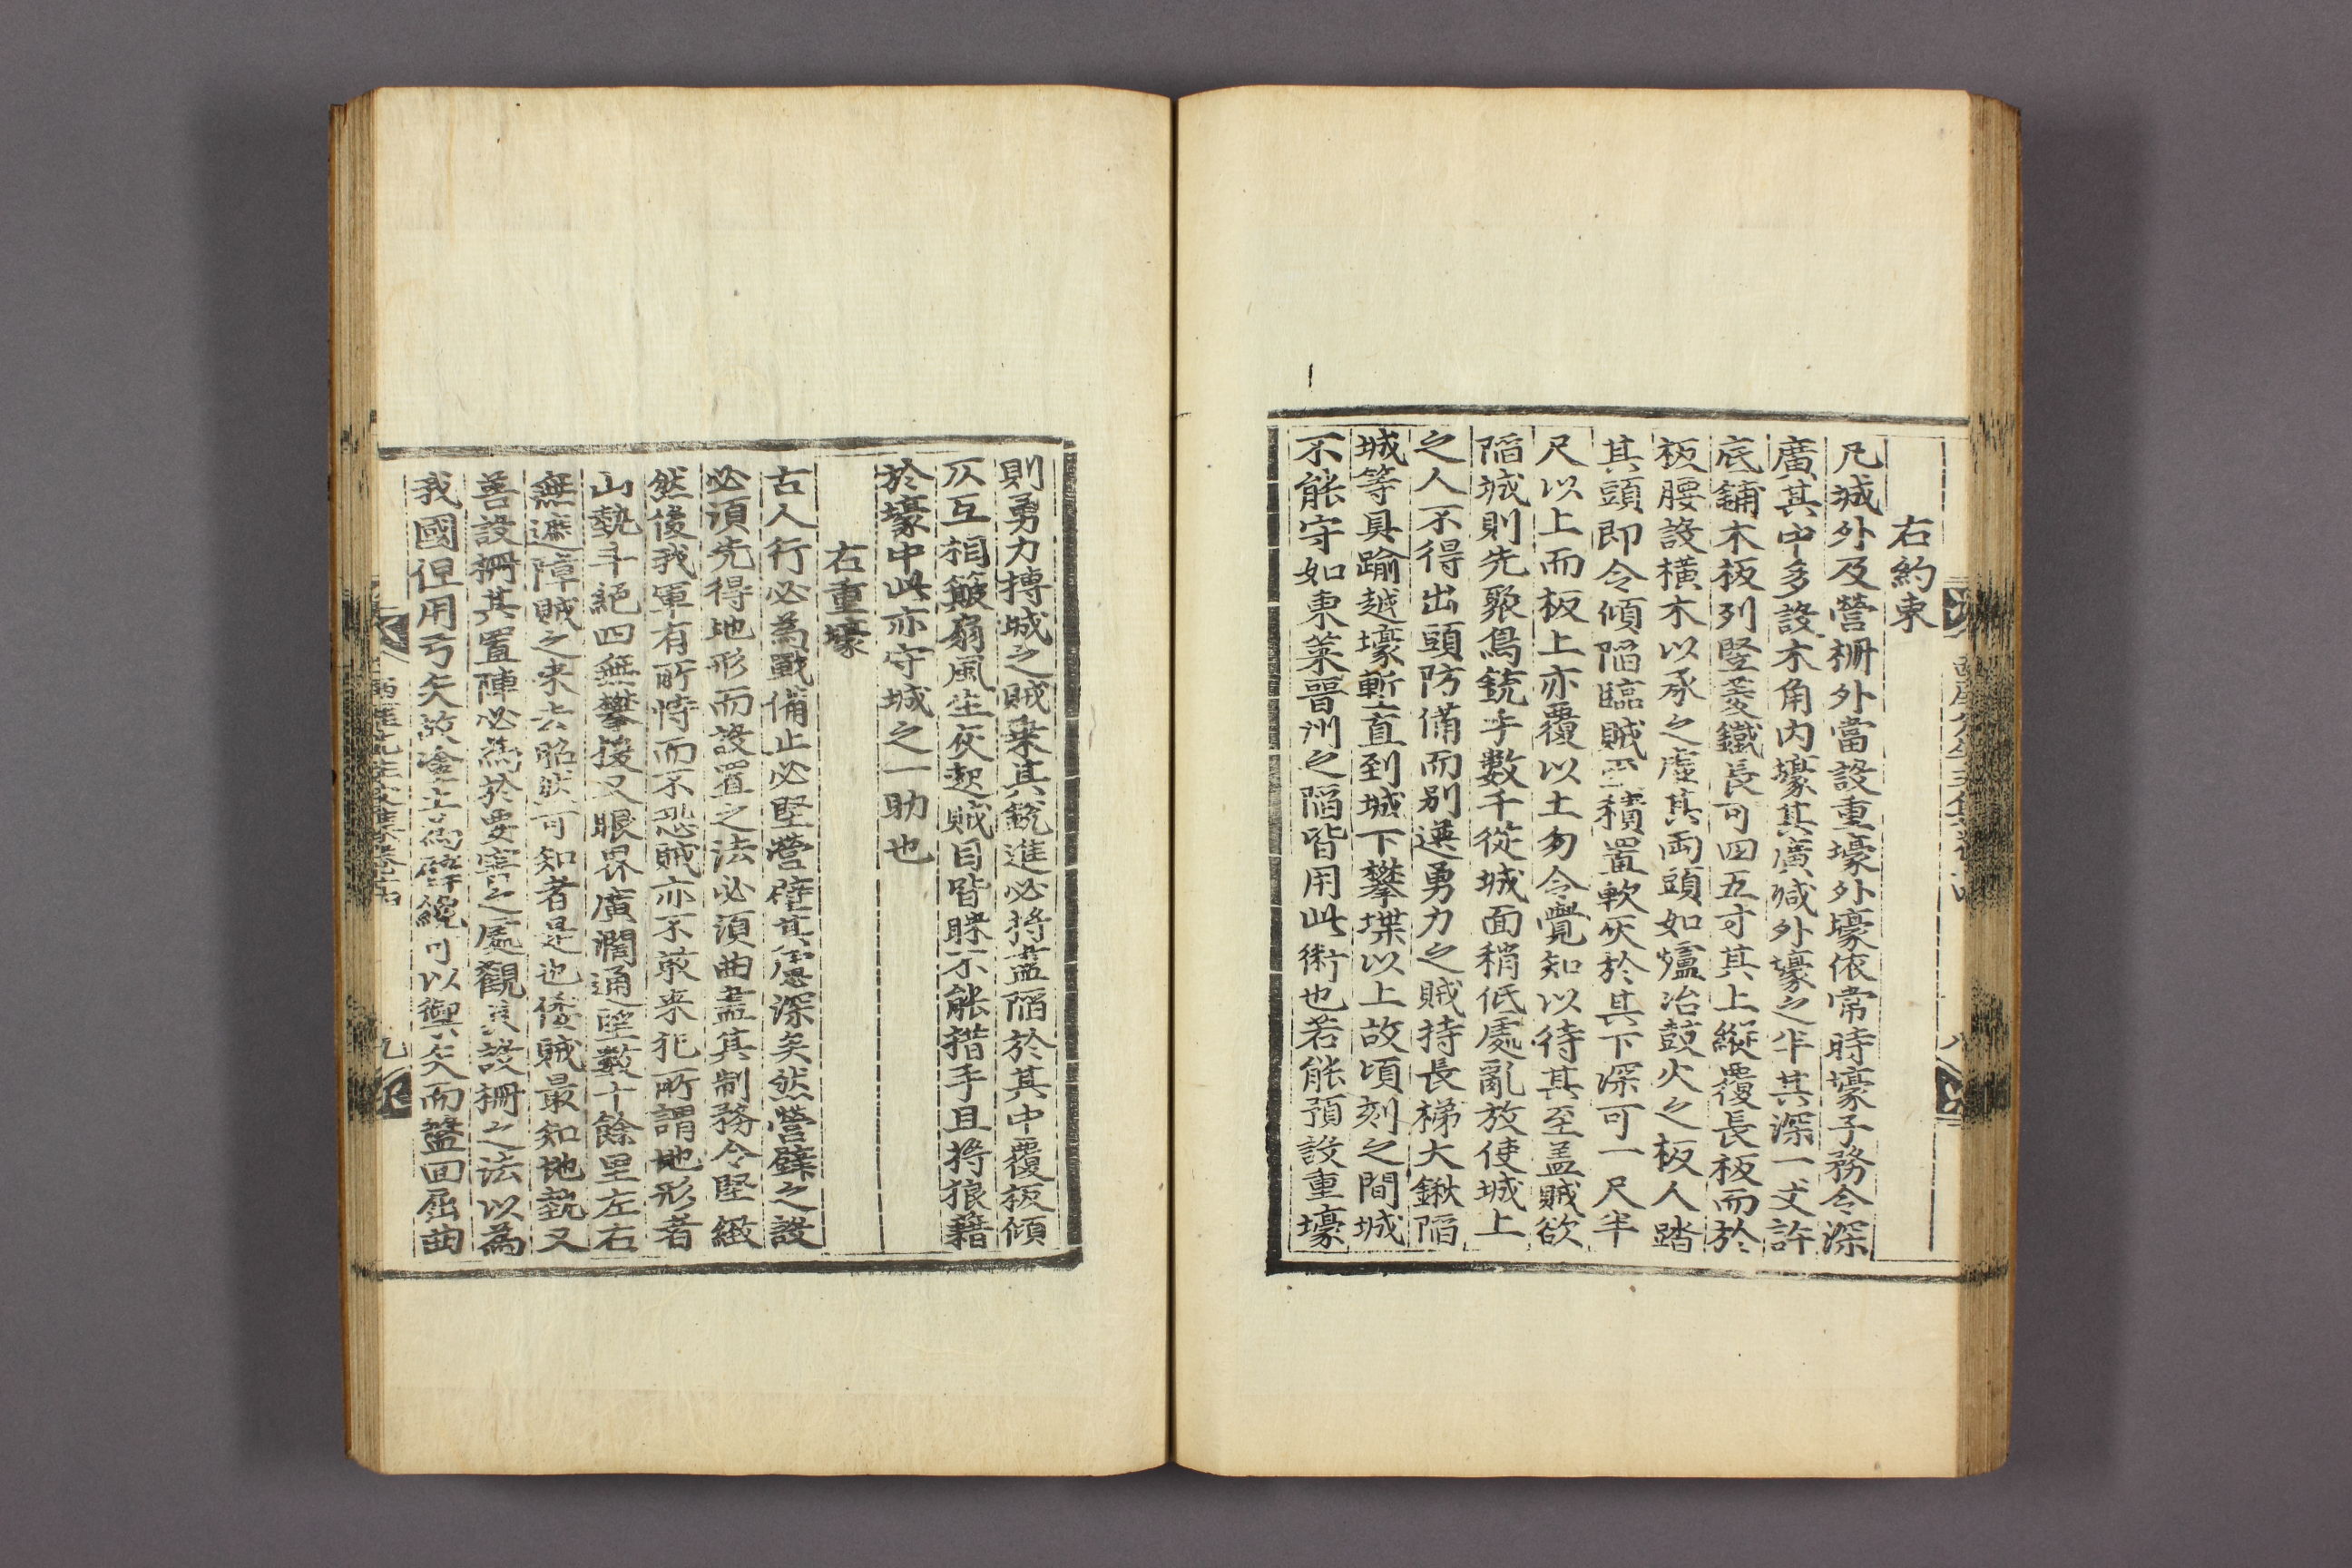 右約束
凡城外及營柵外當設重壕外壕依常時壕子務令深
廣其中多設木角內壕其廣減外壕之半其深一丈許
底鋪木板列竪菱鐵長可四五寸其上縱覆長板而於
板腰設橫木以承之虛其両頭如爐冶鼓火之板人踏
其頭即令傾陷臨賊至積置軟灰於其下深可一尺半
尺以上而板上亦覆以土勿令覺知以待其至盖賊欲
陷城則先聚鳥銃手數千從城面稍低處亂放使城上
之人不得出頭防備而別選勇力之賊持長梯大鍬陷
城等具踰越壕塹直到城下攀堞以上故頃刻之間城
不能守如東萊晉州之陷皆用此術也若能預設重壕
則勇力搏城之賊乗其銳進必将盖陷於其中覆板傾
仄互相簸扇風生灰起賊目皆眯不能措手且将狼藉
於壕中此亦守城之一助也
右重壕
古人行必為戰備止必堅營壁其慮深矣然營壁之設
必須先得地形而設置之法必須曲盡其制務令堅緻
然後我軍有所恃而不恐賊亦不敢来犯所謂地形者
山勢斗絕四無攀援又眼界廣濶通望數十餘里左右
無遮障賊之来去昭然可知者是也倭賊最知地勢又
善設柵其置陣必為於要害之處觀其設柵之法以為
我國但用弓矢故塗土為壁纔可以禦矢而盤回屈曲
西厓先生文集卷之十四
九
八